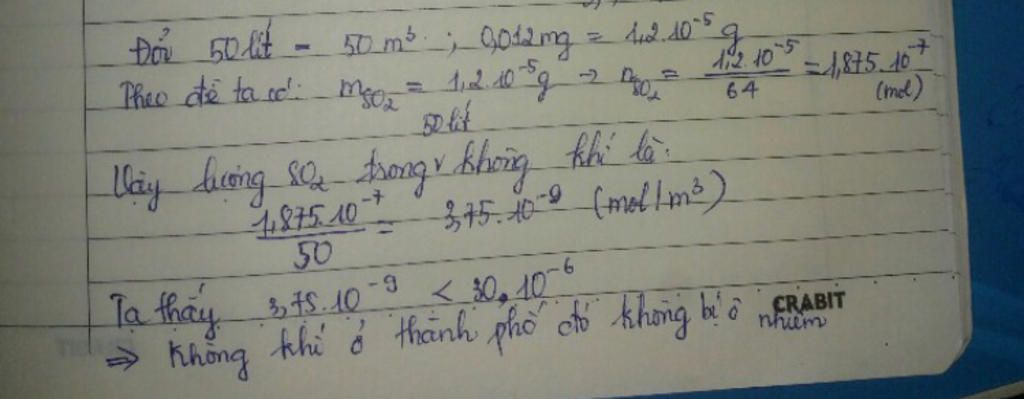 Đổi 50 lít = 50 m³ ; 0,012mg = 1,2.10⁻⁵ g
Theo đề ta có: mSO₂ = 1,2.10⁻⁵g → nSO₂ = 1,2.10⁻⁵/64 = 1,875.10⁻⁷ (mol)
50 lít
Vậy lượng SO₂ trong không khí là:
1,875.10⁻⁷/50 = 3,75.10⁻⁹ (mol/m³)
Ta thấy 3,75.10⁻⁹ < 30.10⁻⁶
⇒ Không khí ở thành phố đó không bị ô nhiễm
CRABIT